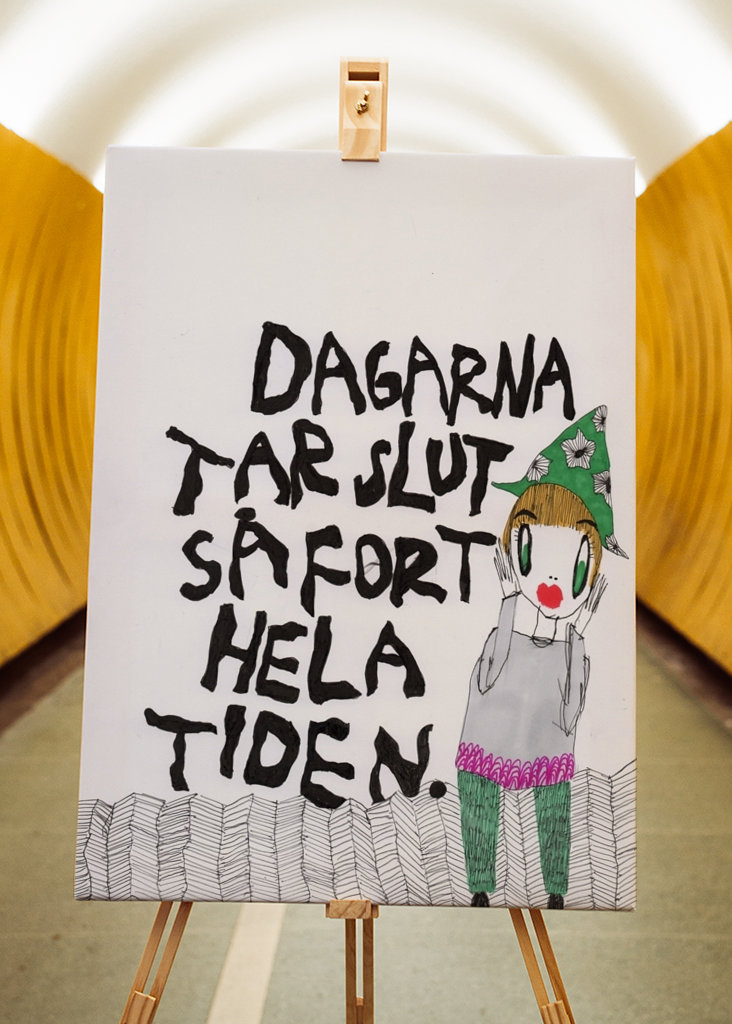 DAGARNA
TAR SLUT
SÅ FORT
HELA
TIDEN.